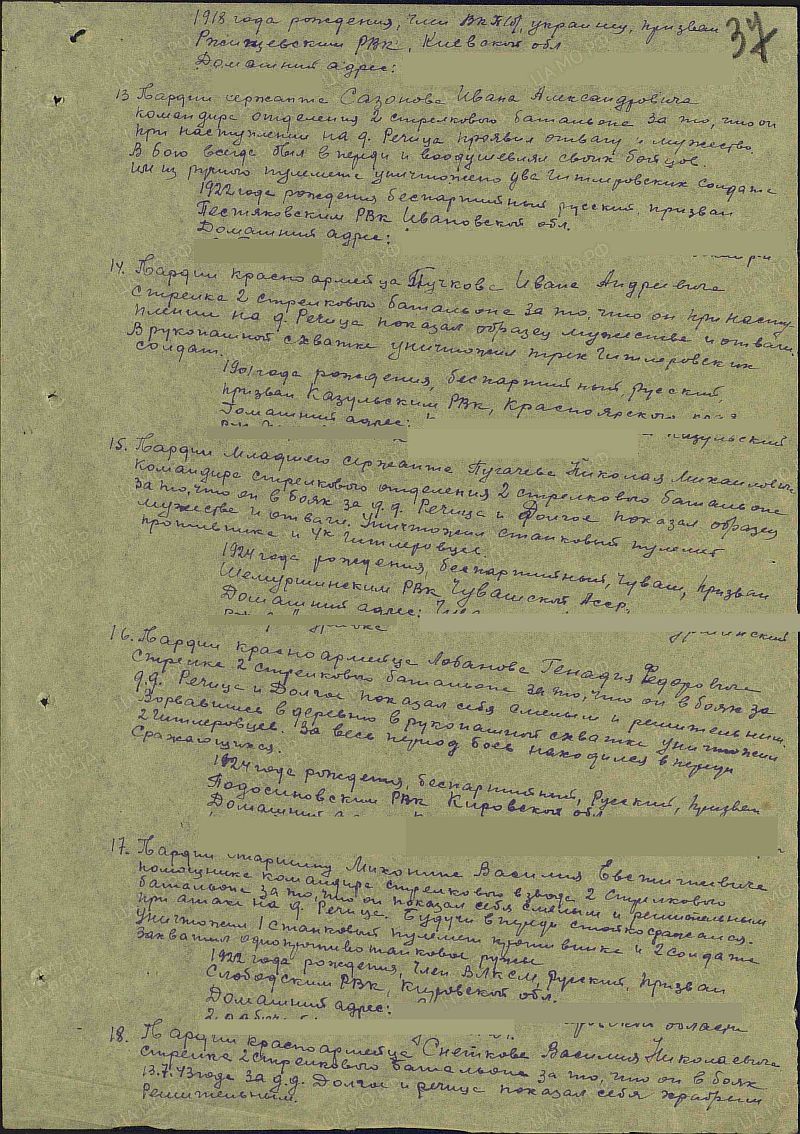 37
1918 года рождения, член ВКП(б), украинец, призван
Ржищевским РВК, Киевской обл
Домашний адрес:
13 Гвардии сержанта Сазонова Ивана Александровича
командира отделения 2 стрелкового батальона за то, что он
при наступлении на д. Речица проявил отвагу и мужество.
В бою всегда был впереди и воодушевлял своих бойцов.
Им из ручного пулемета уничтожено два гитлеровских солдата
1922 года рождения беспартийный русский, призван
Пестяковским РВК Ивановской обл.
Домашний адрес:
14. Гвардии красноармейца Пучкова Ивана Андреевича
стрелка 2 стрелкового батальона за то, что он при насту
плении на д. Речица показал образец мужества и отваги.
В рукопашной схватке уничтожил трех гитлеровских
солдат.
1901 года рождения, беспартийный, русский,
призван Казульским РВК, Красноярского
Домашний адрес:
15. Гвардии младшего сержанта Пугачева Николая Михайловича
командира стрелкового отделения 2 стрелкового батальона
за то, что он в боях за д.д. Речица и Долгое показал образец
мужества и отваги. Уничтожил станковый пулемет
противника и 4х гитлеровцев.
1924 года рождения, беспартийный, чуваш, призван
Шемуршинским РВК Чувашской Асср.
Домашний адрес:
16. Гвардии красноармейца Лобанова Генадия Федоровича
стрелка 2 стрелкового батальона за то, что он в боях за
д.д. Речица и Долгое показал себя смелым и решительным.
Ворвавшись в деревню в рукопашной схватке уничтожил
2 гитлеровцев. За весь период боев находился впереди
сражающихся.
1924 года рождения, беспартийный, Русский, призван
Подосиновским РВК Кировской обл
Домашний
17. Гвардии старшину Михонина Василия Евстигневича
помощника командира стрелкового взвода 2 стрелкового
батальона за то, что он показал себя смелым и решительным
при атаке на д. Речица. Будучи впереди стойко сражался.
Уничтожил 1 станковый пулемет противника и 2 солдата
Захватил одно противотанковое ружье
1922 года рождения, член ВЛКСМ, русский, призван
Слободским РВК, Кировской обл.
Домашний адрес:
области
18. Гвардии красноармейца Снеткова Василия Николаевича
стрелка 2 стрелкового батальона за то, что он в боях
13.7.43 года за д.д. Долгое и речица показал себя храбрым
решительным.